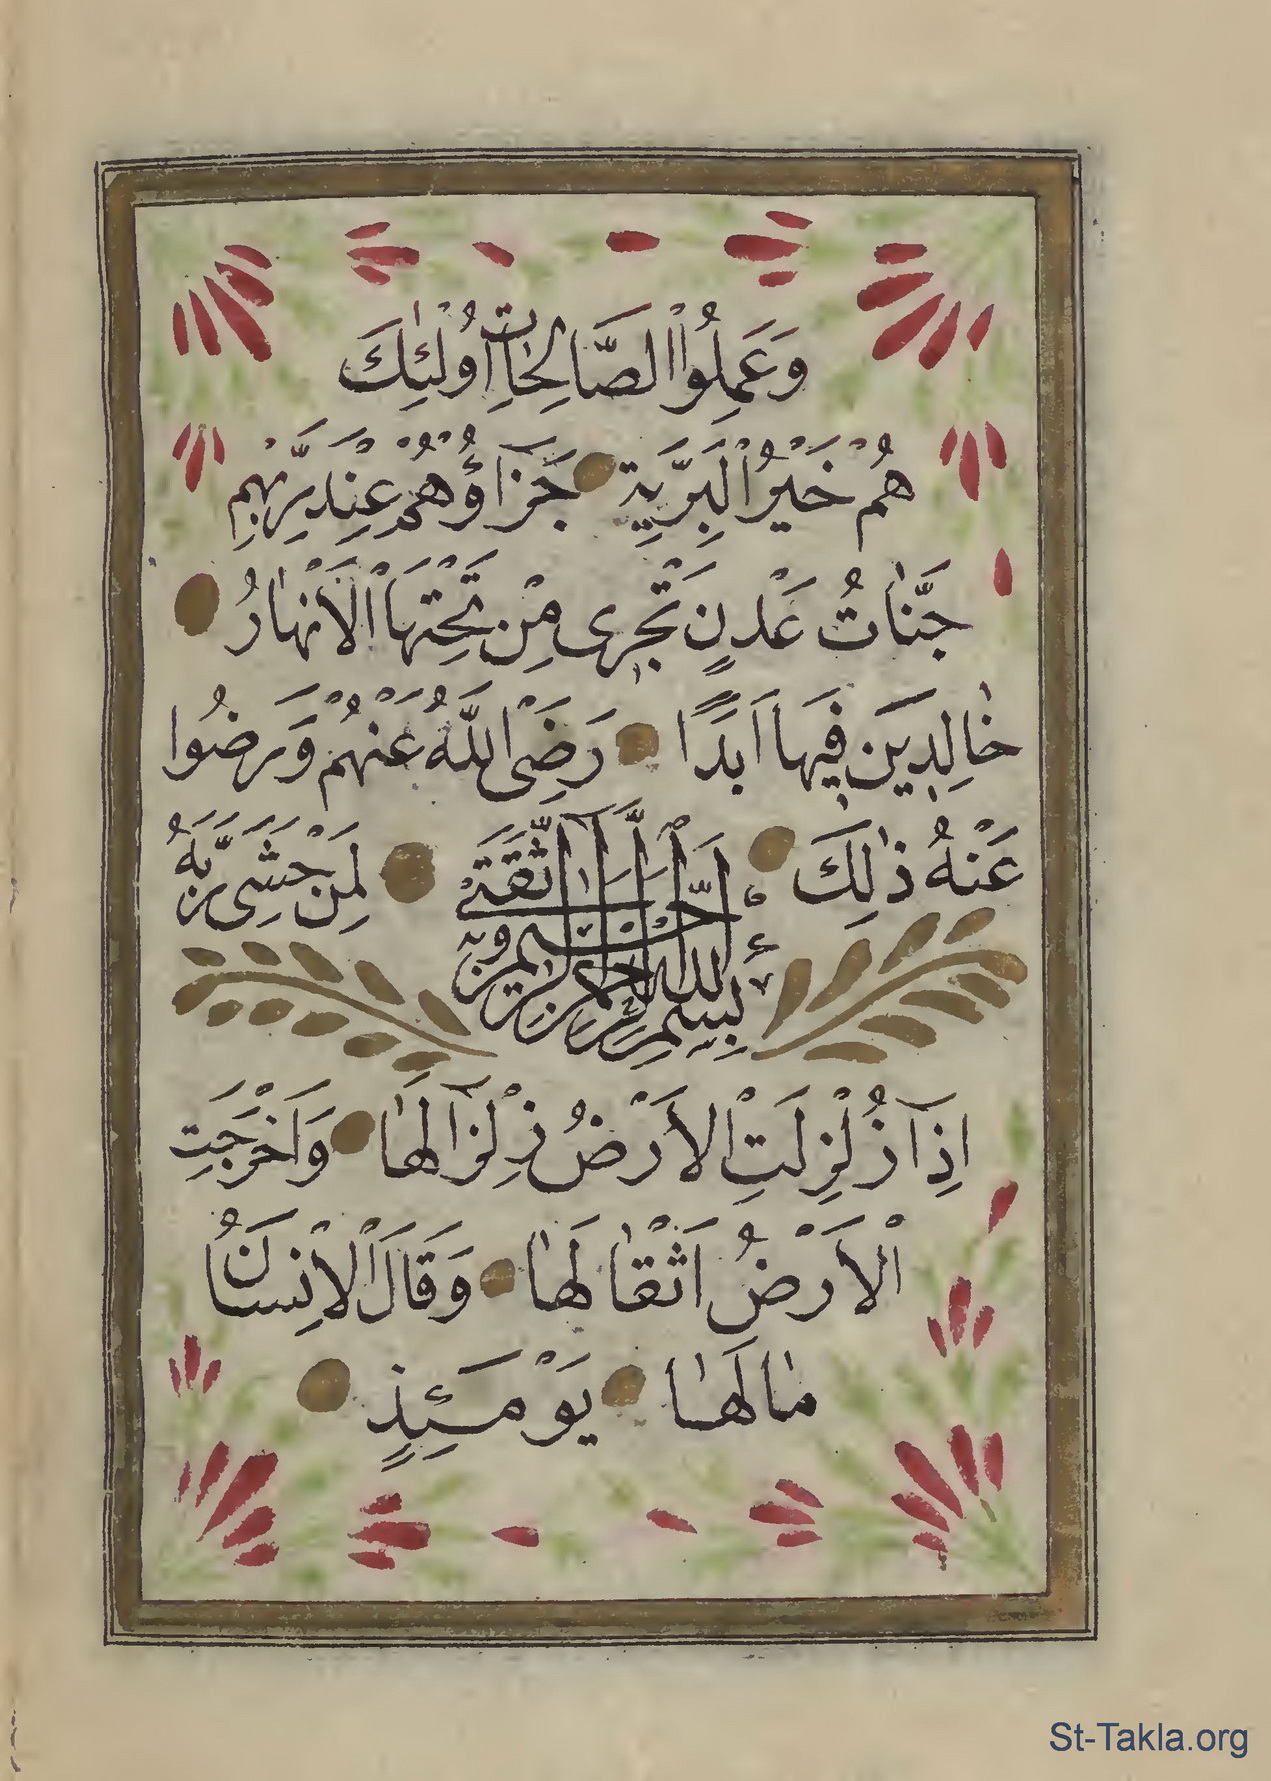 وَعَمِلُوا الصَّالِحَاتِ اُولٰئِكَ
هُمْ خَيْرُ الْبَرِيَّةِ جَزَآؤُهُمْ عِنْدَ رَبِّهِمْ
جَنَّاتُ عَدْنٍ تَجْرِى مِنْ تَحْتِهَا الْاَنْهَارُ
خَالِدِينَ فِيهَا اَبَدًا رَضِىَ اللّٰهُ عَنْهُمْ وَرَضُوا
عَنْهُ ذٰلِكَ لِمَنْ خَشِىَ رَبَّهُ
بِسْمِ اللّٰهِ الرَّحْمٰنِ الرَّحِيمِ
اِذَا زُلْزِلَتِ الْاَرْضُ زِلْزَالَهَا وَاَخْرَجَتِ
الْاَرْضُ اَثْقَالَهَا وَقَالَ الْاِنْسَانُ
مَالَهَا يَوْمَئِذٍ
St-Takla.org